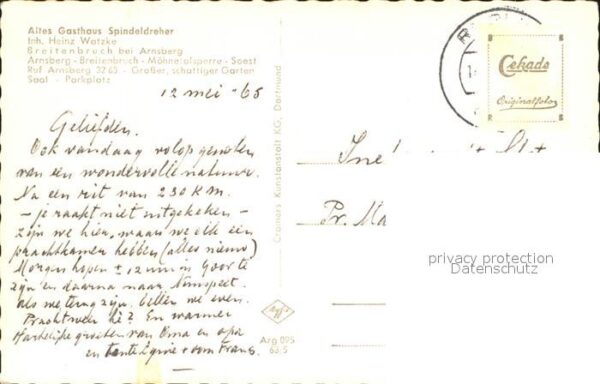 Altes Gasthaus Spindeldreher
Inh. Heinz Watzke
Breitenbruch bei Arnsberg
Arnsberg - Breitenbruch - Möhnetalsperre - Soest
Ruf Arnsberg 3265 - Großer, schattiger Garten
Saal - Parkplatz
12 mei '68
Geliefden.
Ook vandaag volop genoten
van een wondervolle natuur.
Na een rit van 230 K.M.
- je raakt niet uitgekeken -
zijn we hier, waar we elk een
prachtkamer hebben (alles nieuw)
Morgen hopen ± 12 uur in Goor te
zijn en daarna naar Nunspeet.
Als we terug zijn bellen we even.
Prachtweer hè? En warme
Hartelijke groeten van Oma en opa
en tante + oom Frans.
Cramers Kunstanstalt KG, Dortmund
Agfa
Arg 095
66/5
Cekade
Originalfoto
Pr. Ma
privacy protection
Datenschutz